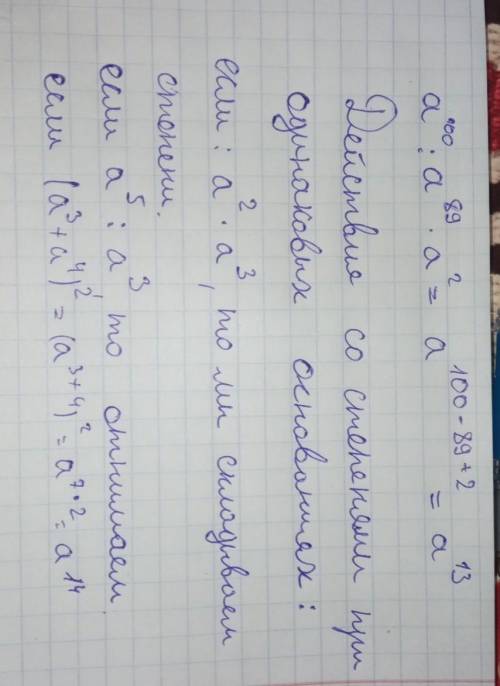 a¹⁰⁰ : a⁸⁹ · a² = a¹⁰⁰⁻⁸⁹⁺² = a¹³
Действия со степенями при
одинаковых основаниях:
если : a² · a³, то мы складываем
степени.
если a⁵ : a³ то отнимаем.
если (a³ + a⁴)² = (a³⁺⁴)² = a⁷·² = a¹⁴